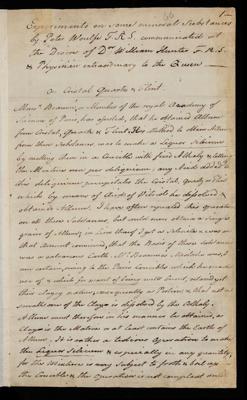 Experiments on some mineral Substances
by Peter Woulfe F.R.S. communicated at
the Desire of Dr William Hunter F.R.S.
& Physician extraordinary to the Queen
On Cristal Quartz & Flint.
Monsr Beaumé, a Member of the royal Academy of
Sciences of Paris, has asserted, that he obtained Allum
from Cristal, Quartz & Flint; his Method to
from these Substances, was to make a Liquor Silicum
by melting them in a Crucible with fixed Alkaly, & letting
the Mixture run per deliquium; any Acid added to
this deliquium precipitates the Cristal, quartz or Flint
which by means of Oil of Vitriol he dissolved &
obtained Allum. I have often repeated this operation
on all these Substances, but could never obtain a single
grain of Allum;
that Account convinced, that the Basis of these Substances
was a calcareous Earth. Mr Beaumés Mistake arose, I
am certain, owing to the Paris Crucibles which he made
use of
their clayey nature,
small
Allum and therefore in his manner he obtained, as
Clay is the Matrix or at least contains the Earth of
Allum. It is rather a tedious Operation to make
the Liquor Silicum & especially in any quantity,
for the Mixture is very Subject to froth & but
the Crucible & the Operation is not compleat until